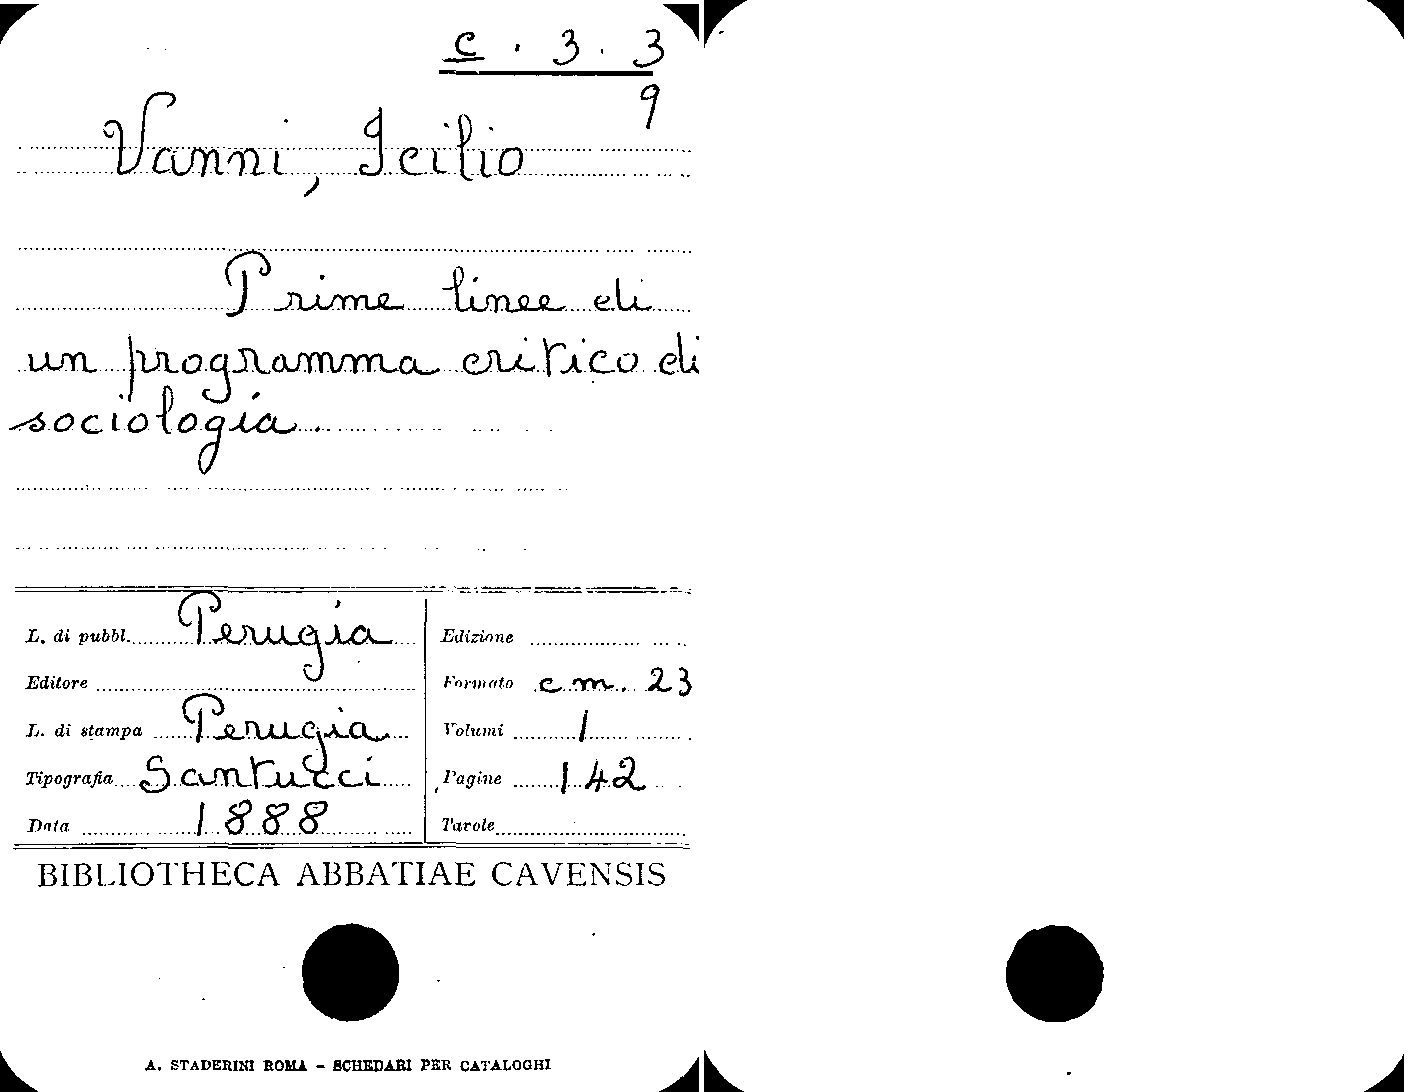 C . 3 . 3
9
Vanni, Icilio
Prime linee di
un programma critico di
sociologia.
L. di pubbl. Perugia
Editore
L. di stampa Perugia
Tipografia Santucci
Data 1888
Edizione
Formato cm. 23
Volumi 1
Pagine 142
Tavole
BIBLIOTHECA ABBATIAE CAVENSIS
A. STADERINI ROMA - SCHEDARI PER CATALOGHI